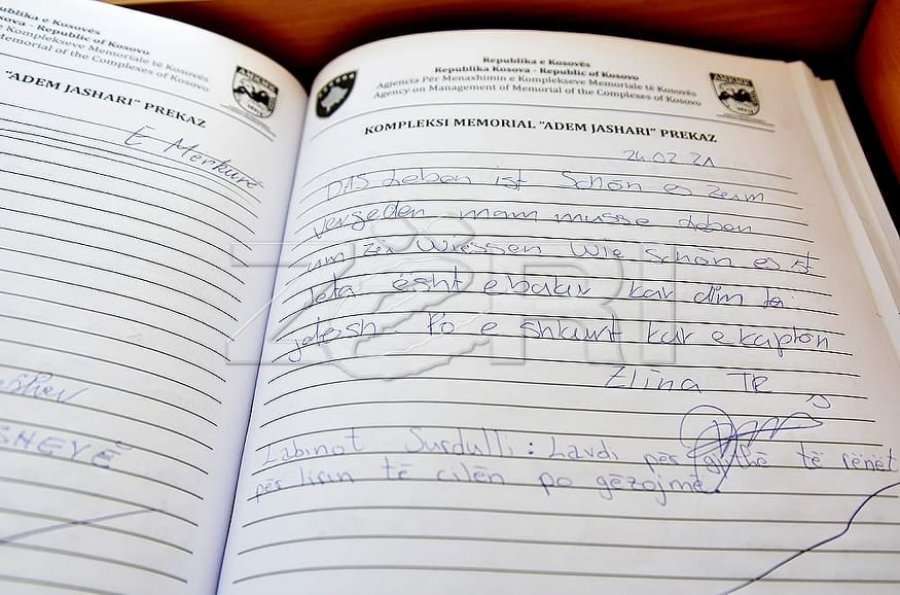 publika e Kosovës
sova - Republic of Kosovo
e Komplekseve Memoriale të Kosovës
Memorial of the Complexes of Kosovo
"ADEM JASHARI" PREKAZ
E Merkurë
SHEVË
Republika e Kosovës
Republika Kosova - Republic of Kosovo
Agjencia Për Menaxhimin e Komplekseve Memoriale të Kosovës
Agency on Management of Memorial of the Complexes of Kosovo
KOMPLEKSI MEMORIAL "ADEM JASHARI" PREKAZ
24.02.21
DAS Leben ist Schön es zum
mam musse leben
um zu Wiessen Wie Schön es ist
Jeta ësht e bukur kur din ta
jetosh Po e shkurt kur e kupton
Elina
Labinot Surdulli: Lavdi për gjithë të rënët
për lirin të cilën po gëzojmë.
ZËRI